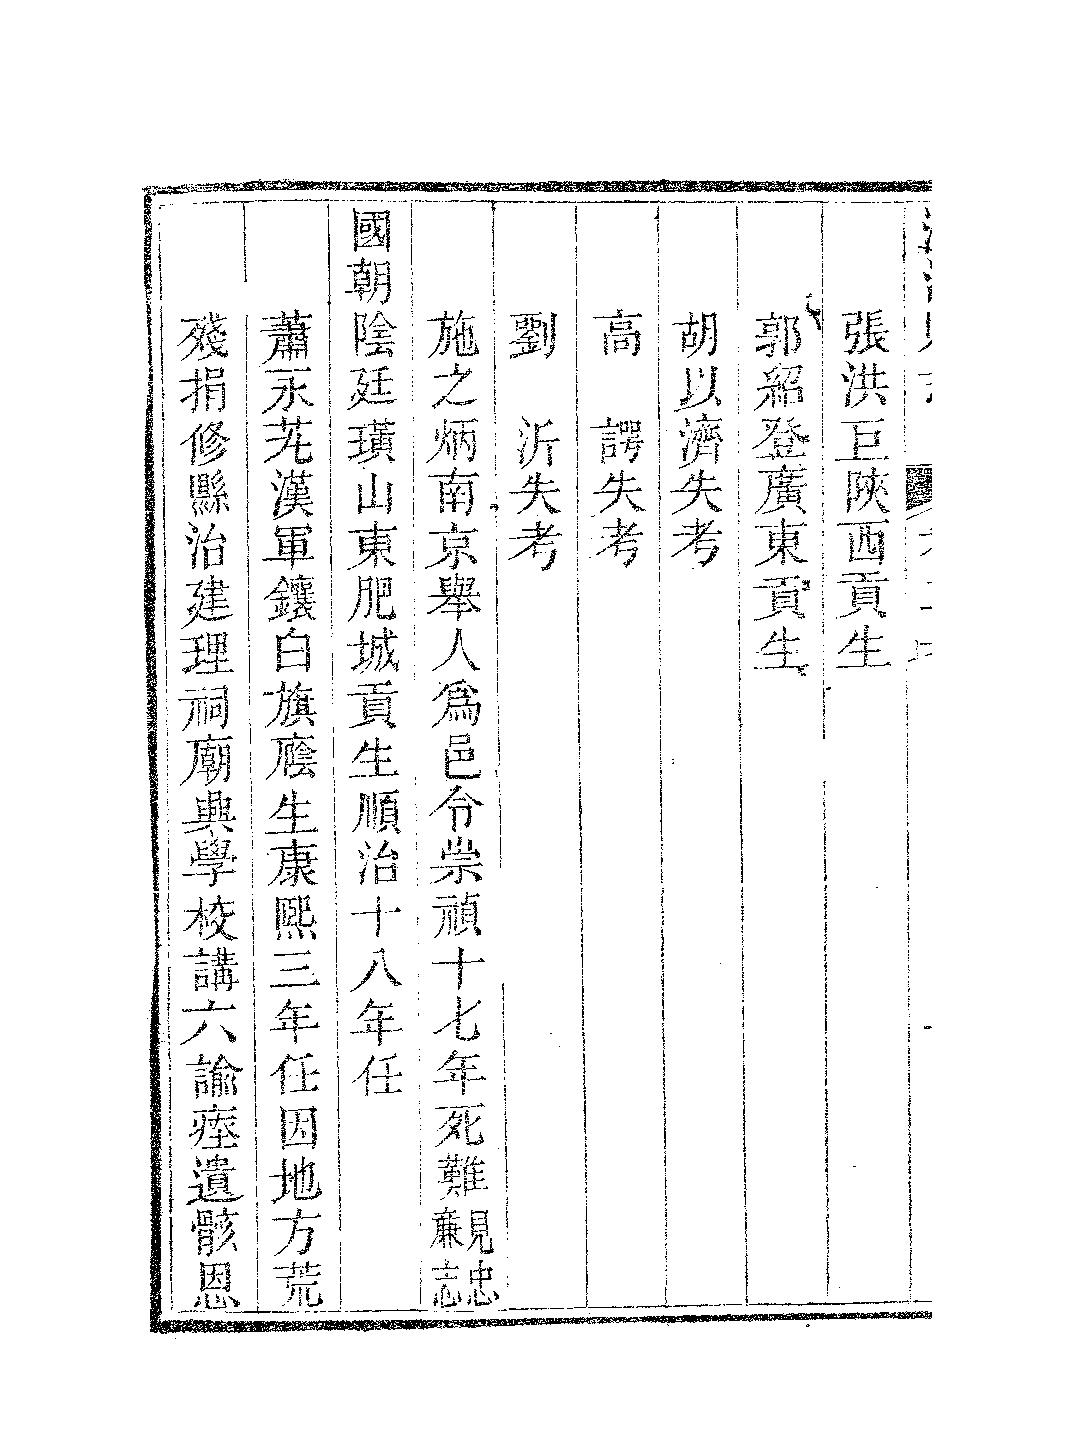 張洪巨陝西貢生
郭紹登廣東貢生
胡以濟失考
高　諤失考
劉　沂失考
施之炳南京舉人爲邑令崇禎十七年死難見忠廉志
國朝陰廷璜山東肥城貢生順治十八年任
蕭永芄漢軍鑲白旗廕生康熙三年任因地方荒
殘捐修縣治建理祠廟興學校講六諭瘞遺骸恩